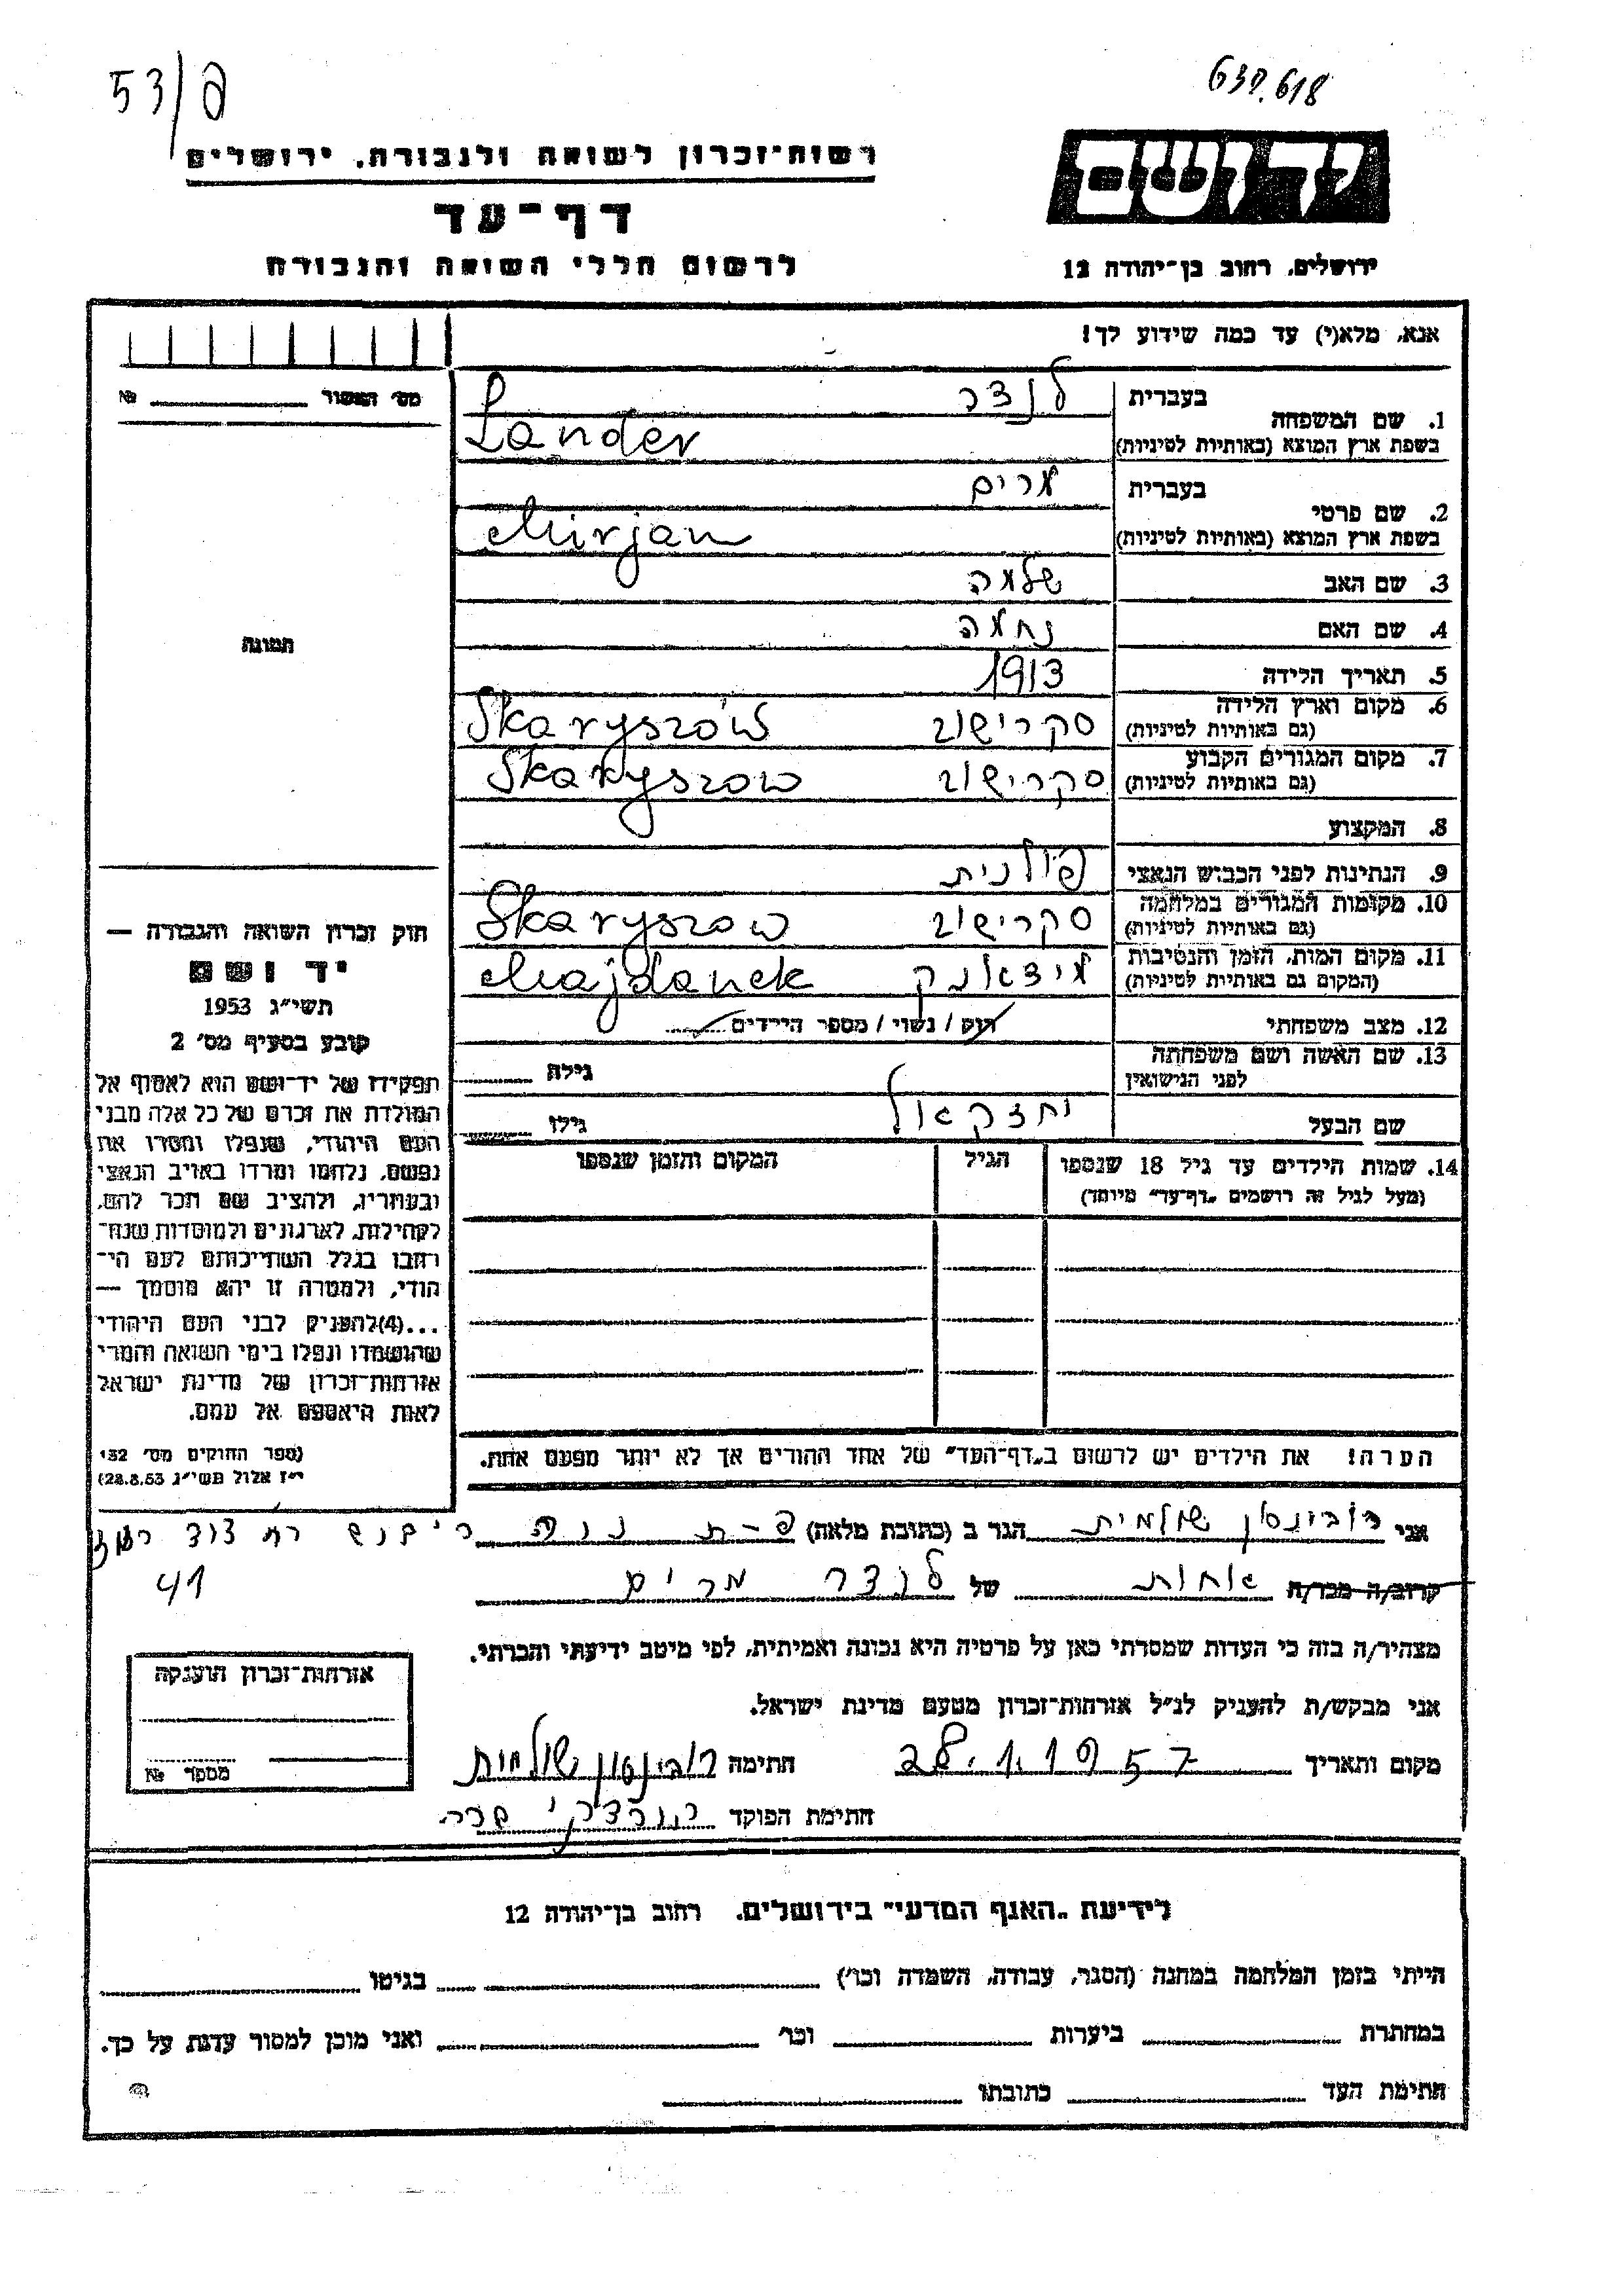 53/פ
639.618
רשות־זכרון לשואה ולגבורה, ירושלים
יד ושם
דף־עד
לרשום חללי השואה והגבורה
ירושלים, רחוב בן־יהודה 12
אנא, מלא(י) עד כמה שידוע לך!
מס' האשור №
1. שם המשפחה
בעברית לנדר
בשפת ארץ המוצא (באותיות לטיניות) Lander
2. שם פרטי
בעברית מרים
בשפת ארץ המוצא (באותיות לטיניות) Mirjam
3. שם האב שלמה
4. שם האם נחמה
5. תאריך הלידה 1913
6. מקום וארץ הלידה סקרישוב Skaryszów
(גם באותיות לטיניות)
7. מקום המגורים הקבוע סקרישוב Skaryszow
(גם באותיות לטיניות)
8. המקצוע
9. הנתינות לפני הכבוש הנאצי פולנית
10. מקומות המגורים במלחמה סקרישוב Skaryszow
(גם באותיות לטיניות)
11. מקום המות, הזמן והנסיבות מידאנק Majdanek
(המקום גם באותיות לטיניות)
12. מצב משפחתי רוק / נשוי / מספר הילדים
13. שם האשה ושם משפחתה
לפני הנישואין גילה
שם הבעל יחזקאל גילו
14. שמות הילדים עד גיל 18 שנספו הגיל המקום והזמן שנספו
(מעל לגיל זה רושמים „דף־עד" מיוחד)
תמונה
חוק זכרון השואה והגבורה —
יד ושם
תשי"ג 1953
קובע בסעיף מס' 2
תפקידו של יד־ושם הוא לאסוף אל
המולדת את זכרם של כל אלה מבני
העם היהודי, שנפלו ומסרו את
נפשם, נלחמו ומרדו באויב הנאצי
ובעוזריו, ולהציב שם וזכר להם,
לקהילות, לארגונים ולמוסדות שנח־
רבו בגלל השתייכותם לעם הי־
הודי, ולמטרה זו יהא מוסמך —
...(4)להעניק לבני העם היהודי
שהושמדו ונפלו בימי השואה והמרי
אזרחות־זכרון של מדינת ישראל
לאות היאספם אל עמם.
(ספר החוקים מס' 132,
י"ז אלול תשי"ג 28.8.53)
הערה! את הילדים יש לרשום ב„דף־העד" של אחד ההורים אך לא יותר מפעם אחת.
אני רובינסון שולמית הגר ב (כתובת מלאה) פ-ת נוה רח דוד
41
קרוב/ה מכר/ה אחות של לנדר מרים
מצהיר/ה בזה כי העדות שמסרתי כאן על פרטיה היא נכונה ואמיתית, לפי מיטב ידיעתי והכרתי.
אני מבקש/ת להעניק לנ"ל אזרחות־זכרון מטעם מדינת ישראל.
מקום ותאריך 28.1.1957 חתימה רובינסון שולמית
חתימת הפוקד שרה
אזרחות־זכרון הוענקה
מספר №
לידיעת „האגף המדעי" בירושלים, רחוב בן־יהודה 12
הייתי בזמן המלחמה במחנה (הסגר, עבודה, השמדה וכו') בגיטו
במחתרת ביערות וכו' ואני מוכן למסור עדות על כך.
חתימת העד כתובתו